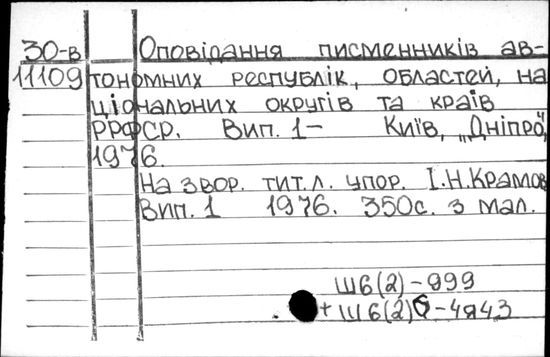 30-в Оповідання писменників ав-
11109 тономних республік, областей, на
ціональних округів та країв
РРФСР. Вип. 1- Київ, „Дніпро",
1976.
На звор. тит. л. упор. І.Н.Крамов
Вип. 1 1976. 350с. з мал.
Ш6(2)-999
+ Ш6(2)